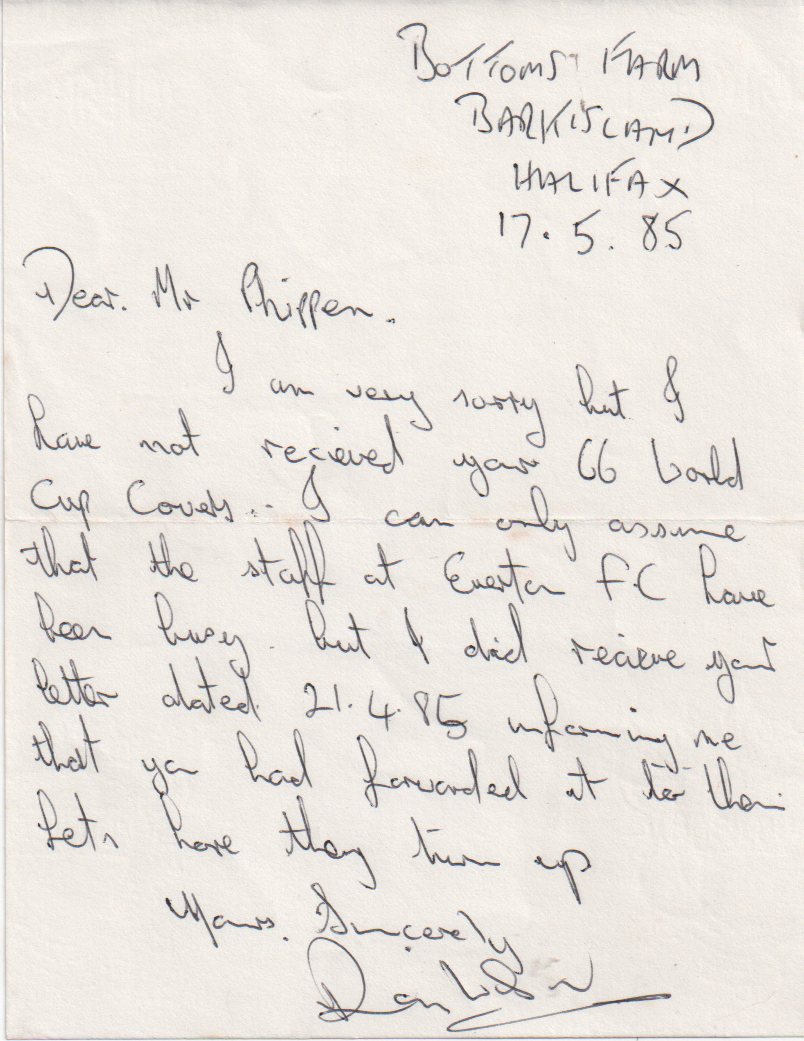 BOTTOMS FARM
BARKISLAND
HALIFAX
17.5.85
Dear. Mr Phippen.
I am very sorry but I
have not recieved your 66 World
Cup Covers.. I can only assume
that the staff at Everton FC have
been busy. but I did recieve your
letter dated 21.4.85 informing me
that you had forwarded it to them
Lets hope they turn up
Yours. Sincerely
Ray Wilson